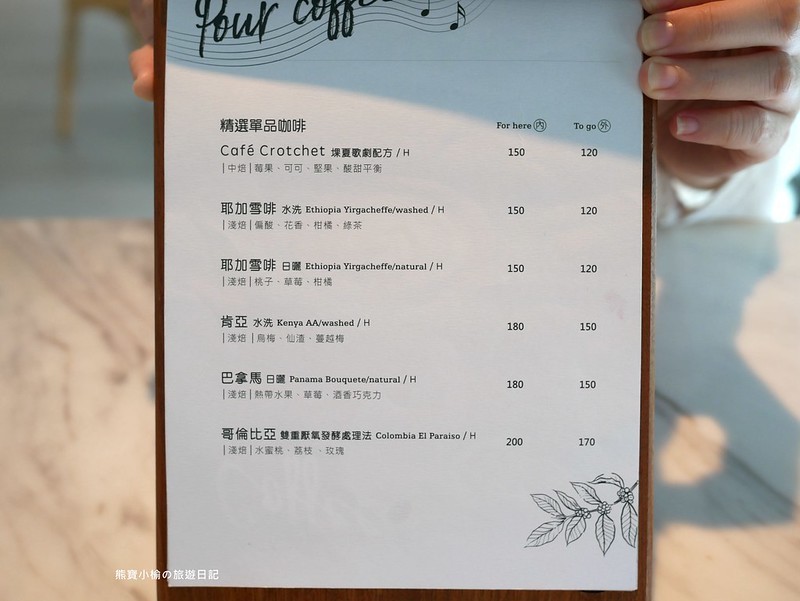 Pour coffee
精選單品咖啡 For here 內 To go 外
Café Crotchet 堁夏歌劇配方 / H 150 120
|中焙|莓果、可可、堅果、酸甜平衡
耶加雪啡 水洗 Ethiopia Yirgacheffe/washed / H 150 120
|淺焙|偏酸、花香、柑橘、綠茶
耶加雪啡 日曬 Ethiopia Yirgacheffe/natural / H 150 120
|淺焙|桃子、草莓、柑橘
肯亞 水洗 Kenya AA/washed / H 180 150
|淺焙|烏梅、仙渣、蔓越梅
巴拿馬 日曬 Panama Bouquete/natural / H 180 150
|淺焙|熱帶水果、草莓、酒香巧克力
哥倫比亞 雙重厭氧發酵處理法 Colombia El Paraiso / H 200 170
|淺焙|水蜜桃、荔枝 、玫瑰
熊寶小榆の旅遊日記